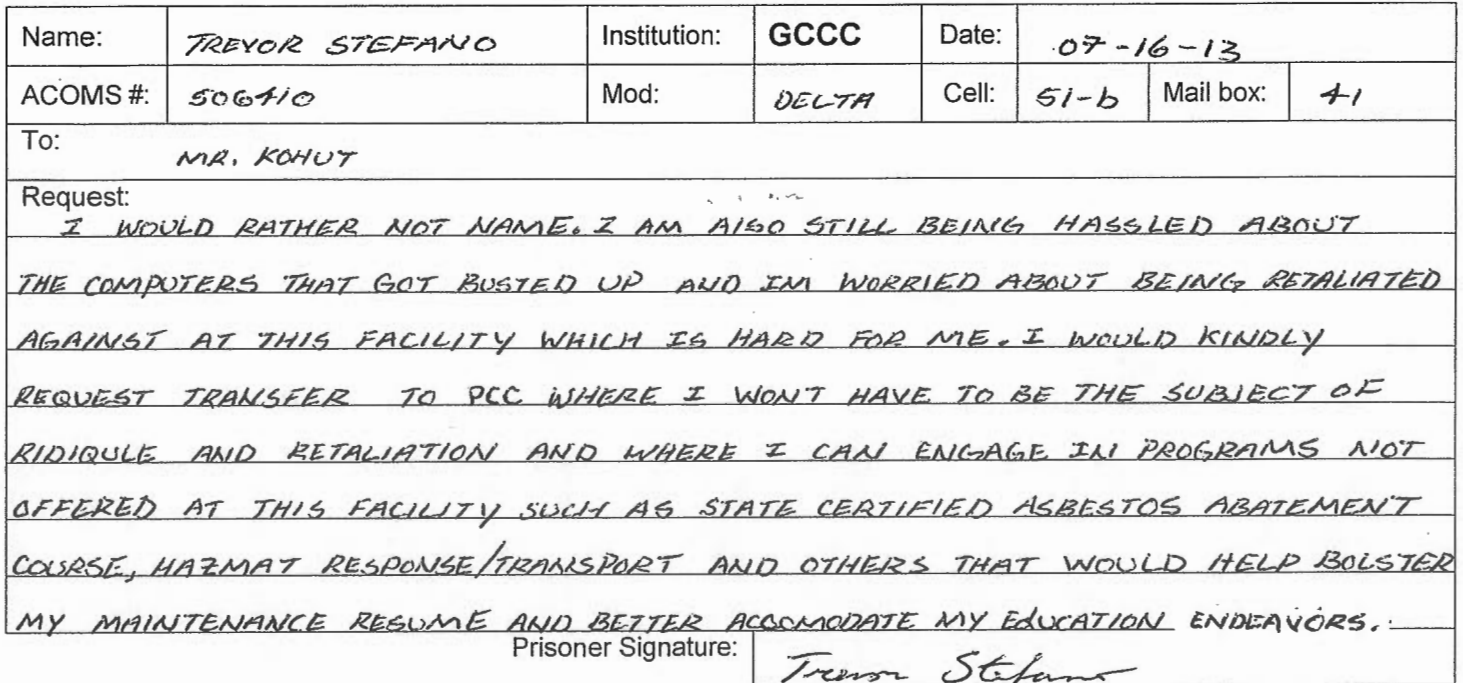 Name: TREVOR STEFANO Institution: GCCC Date: 07-16-13
ACOMS #: 506410 Mod: DELTA Cell: 51-b Mail box: 41
To: MR. KOHUT
Request:
I WOULD RATHER NOT NAME. I AM AlSO STILL BEING HASSLED ABOUT
THE COMPUTERS THAT GOT BUSTED UP AND IM WORRIED ABOUT BEING RETALIATED
AGAINST AT THIS FACILITY WHICH IS HARD FOR ME. I WOULD KINDLY
REQUEST TRANSFER TO PCC WHERE I WON'T HAVE TO BE THE SUBJECT OF
RIDIQULE AND RETALIATION AND WHERE I CAN ENGAGE IN PROGRAMS NOT
OFFERED AT THIS FACILITY SUCH AS STATE CERTIFIED ASBESTOS ABATEMENT
COURSE, HAZMAT RESPONSE/TRANSPORT AND OTHERS THAT WOULD HELP BOLSTER
MY MAINTENANCE RESUME AND BETTER ACCOMODATE MY EdUCATION ENDEAVORS.
Prisoner Signature: Trevor Stefano